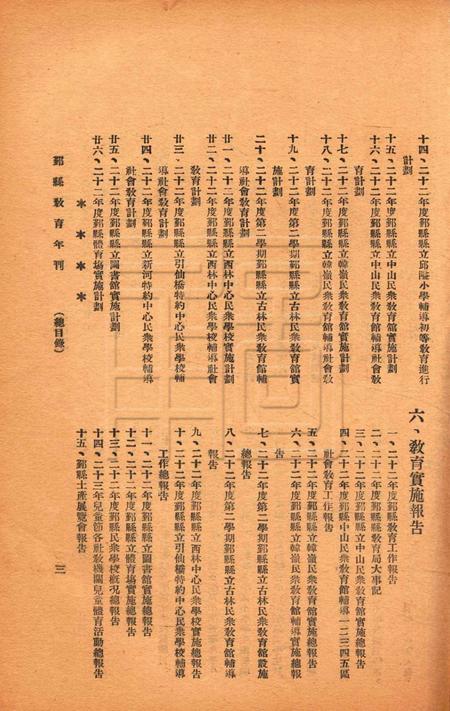 十四、二十二年度鄞縣縣立邱隘小學輔導初等教育進行
計劃
十五、二十二年度鄞縣縣立中山民衆教育館實施計劃
十六、二十二年度鄞縣縣立中山民衆教育館輔導社會教
育計劃
十七、二十二年度鄞縣縣立韓嶺民衆教育館實施計劃
十八、二十二年度鄞縣縣立韓嶺民衆教育館輔導社會教
育計劃
十九、二十二年度第二學期鄞縣縣立古林民衆教育館實
施計劃
二十、二十二年度第二學期鄞縣縣立古林民衆教育館輔
導社會教育計劃
廿一、二十二年度鄞縣縣立西林中心民衆學校實施計劃
廿二、二十二年度鄞縣縣立西林中心民衆學校輔導社會
教育計劃
廿三、二十二年度鄞縣縣立引仙橋特約中心民衆學校輔
導社會教育計劃
廿四、二十二年度鄞縣縣立新河特約中心民衆學校輔導
社會教育計劃
廿五、二十二年度鄞縣縣立圖書館實施計劃
廿六、二十二年度鄞縣體育塲實施計劃
六、教育實施報告
一、二十二年度鄞縣教育工作報告
二、二十二年度教育局大事記
三、二十二年度鄞縣縣立中山民衆教育館實施總報告
四、二十二年度鄞縣中山民衆教育館輔導一二三四五區
社會教育工作報告
五、二十二年度鄞縣縣立韓嶺民衆教育館實施總報告
六、二十二年度鄞縣縣立韓嶺民衆教育館輔導實施總報
告
七、二十二年度第二學期鄞縣縣立古林民衆教育館設施
總報告
八、二十二年度第二學期鄞縣縣立古林民衆教育館輔導
報告
九、二十二年度鄞縣縣立西林中心民衆學校實施總報告
十、二十二年度鄞縣縣立引仙橋特約中心民衆學校輔導
工作總報告
十一、二十二年度鄞縣縣立圖書館實施總報告
十二、二十二年度鄞縣縣立體育塲實施總報告
十三、二十二年度鄞縣民衆學校概况總報告
十四、二十三年兒童節各社教機關兒童體育活動總報告
十五、鄞縣土產展覽會報告
鄞縣教育年刊 （總目錄） 三